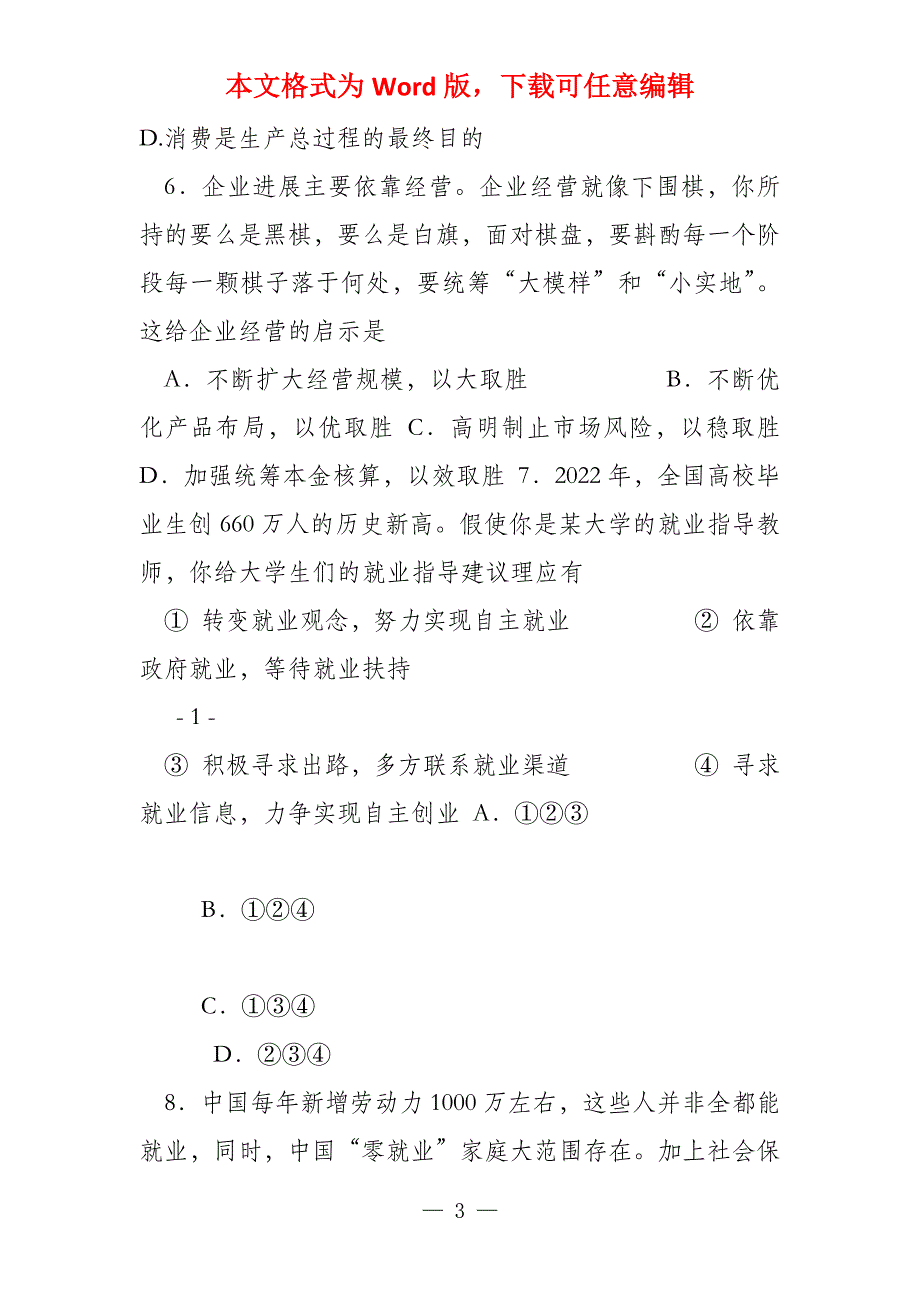 本文格式为 Word 版，下载可任意编辑
D.消费是生产总过程的最终目的
6．企业进展主要依靠经营。企业经营就像下围棋，你所
持的要么是黑棋，要么是白旗，面对棋盘，要斟酌每一个阶
段每一颗棋子落于何处，要统筹“大模样”和“小实地”。
这给企业经营的启示是
A．不断扩大经营规模，以大取胜 B．不断优
化产品布局，以优取胜 C．高明制止市场风险，以稳取胜
D．加强统筹本金核算，以效取胜 7．2022 年，全国高校毕
业生创 660 万人的历史新高。假使你是某大学的就业指导教
师，你给大学生们的就业指导建议理应有
① 转变就业观念，努力实现自主就业 ② 依靠
政府就业，等待就业扶持
- 1 -
③ 积极寻求出路，多方联系就业渠道 ④ 寻求
就业信息，力争实现自主创业 A．①②③
B．①②④
C．①③④
D．②③④
8．中国每年新增劳动力 1000 万左右，这些人并非全都能
就业，同时，中国“零就业”家庭大范围存在。加上社会保
— 3 —